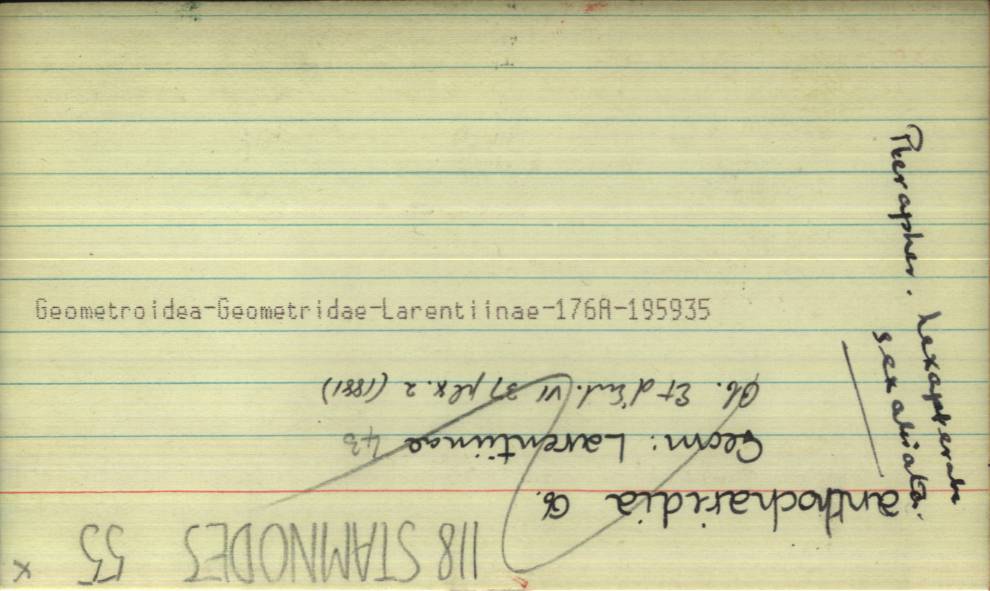 118 STAMNODES 55 x
anthocharidia Ob.
Geom: Larentiinae 43
Ob. Et d'Ent. VI 37 pl x. 2 (1881)
Geometroidea-Geometridae-Larentiinae-176A-195935
hexapterata
sexalisata